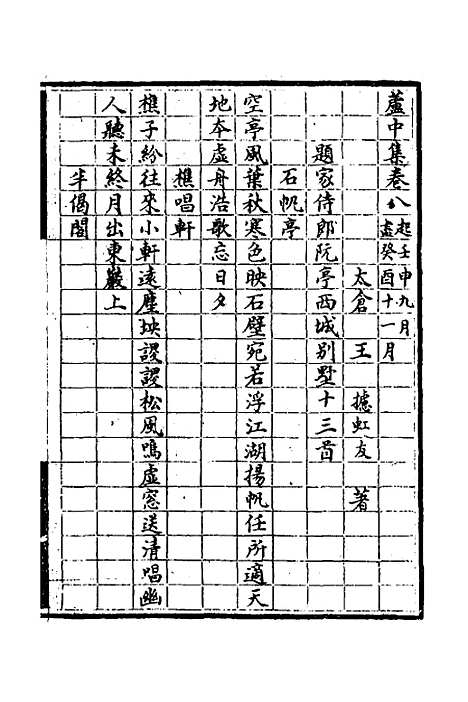 蘆中集卷八 起壬申九月盡癸酉十一月
太倉 王 摅虹友 著
題家侍郎阮亭西城別墅十三首
石帆亭
空亭風葉秋寒色映石壁宛若浮江湖揚帆任所適天
地本虛舟浩歌忘日夕
樵唱軒
樵子紛往來小軒遠塵坱謖謖松風鳴虛窓送清唱幽
人聽未終月出東巖上
半偈閣